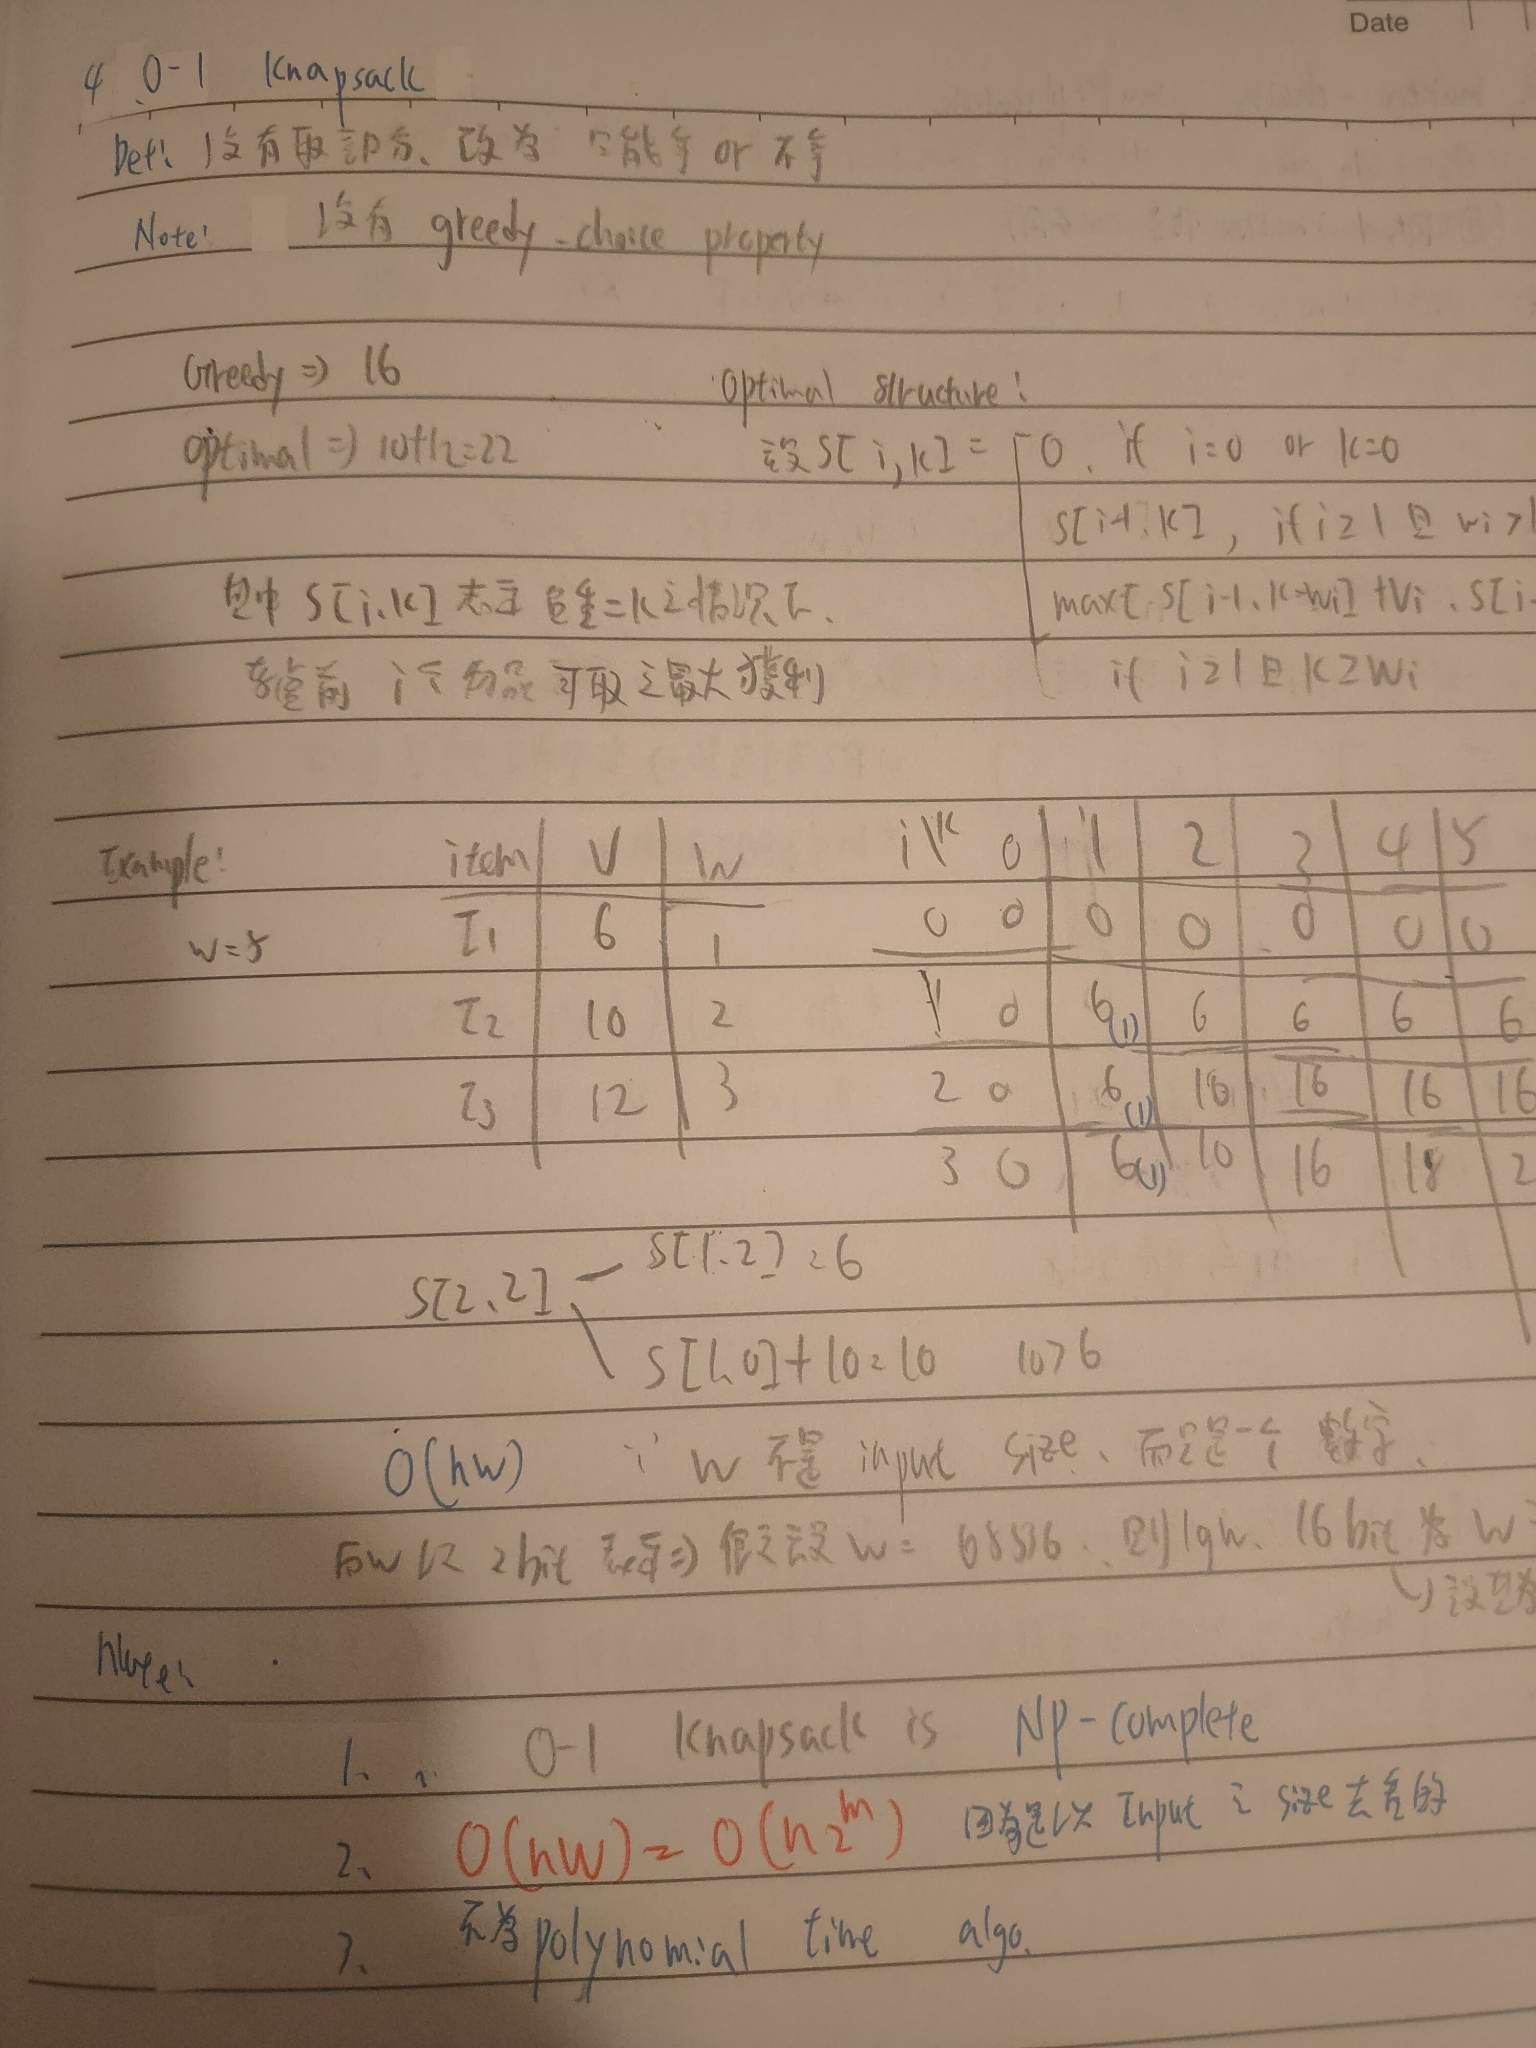 Date
4 0-1 Knapsack
Def: 沒有取部分、改為 只能拿 or 不拿
Note: 沒有 greedy-choice property
Greedy => 16
optimal => 10+12=22
Optimal structure:
設 S[i,K] = 0, if i=0 or K=0
S[i-1,K], if i≥1 且 wi>
max[S[i-1,K-wi]+Vi, S[i-
if i≥1 且 K≥Wi
且中 S[i,K] 表示 負重=K之情況下、
考慮前 i 個 物品 可取之最大獲利
Example:
W=5
item V W
I1 6 1
I2 10 2
I3 12 3
i\K 0 1 2 3 4 5
0 0 0 0 0 0 0
1 0 6(1) 6 6 6 6
2 0 6(1) 10 16 16 16
3 0 6(1) 10 16 18 2
S[2,2] S[1,2]=6
S[1,0]+10=10 10>6
O(nW) ∵ W 不是 input size、而只是一个 數字、
而W以 2 bit 表示=> 假設 W= 65536、則 lgW、16 bit 為 W
Note:
1. 0-1 Knapsack is NP-complete
2. O(nW)=O(n2^m) 因為是以 Input 之 size 去看的
3. 不為 polynomial time algo.